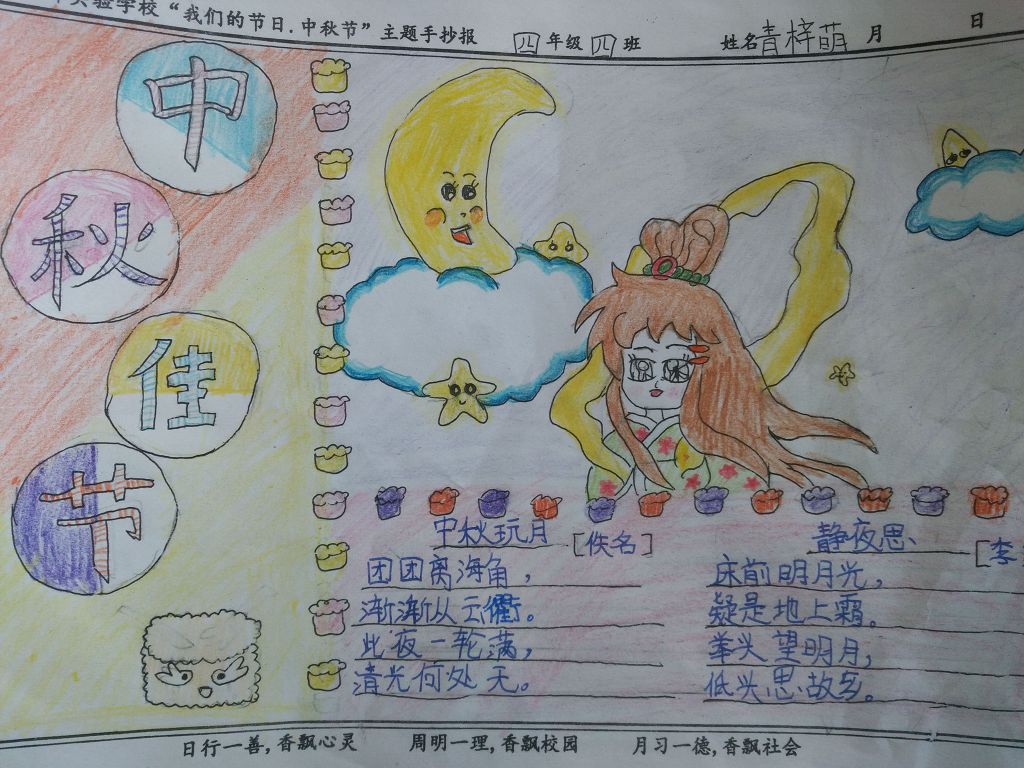 实验学校“我们的节日.中秋节”主题手抄报 四年级四班 姓名青梓萌 月 日
中
秋
佳
节
中秋玩月 [佚名]
团团离海角，
渐渐从云衢。
此夜一轮满，
清光何处无。
静夜思 [李
床前明月光，
疑是地上霜。
拳头望明月，
低头思故乡。
日行一善，香飘心灵 周明一理，香飘校园 月习一德，香飘社会